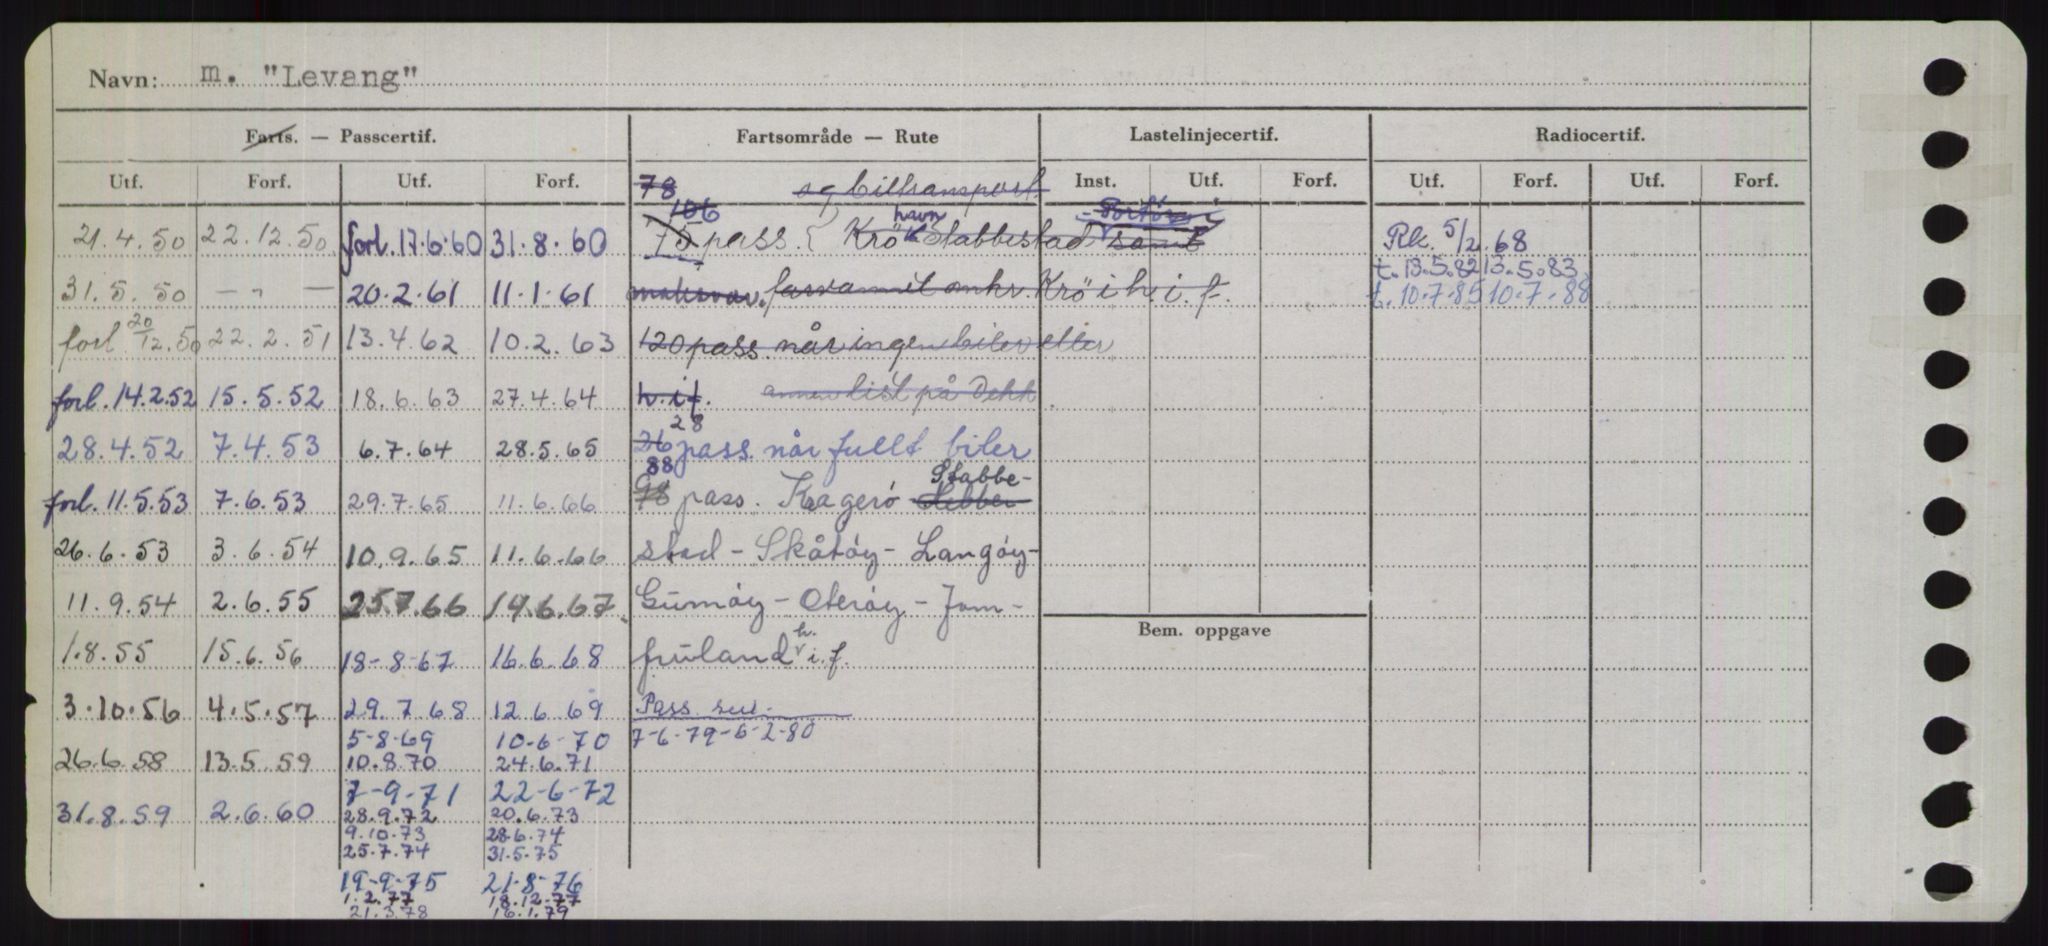 Navn: m. "Levang"
Farts. — Passcertif. Fartsområde — Rute Lastelinjecertif. Radiocertif.
Utf. Forf. Utf. Forf. 78 og biltransport Inst. Utf. Forf. Utf. Forf. Utf. Forf.
106 havn
21.4.50 22.12.50 forl. 17.6.60 31.8.60 75 pass. Krö Stabbestad samt Rk. 5/2.68
t. 13.5.82 13.5.83
31.5.50 — " — 20.2.61 11.1.61 Krö i h. i. f. t. 10.7.85 10.7.88
forl 20/12.50 22.2.51 13.4.62 10.2.63 120 pass. når ingen biler eller
forl. 14.2.52 15.5.52 18.6.63 27.4.64 h.i.f. annen list på Dekk
28
28.4.52 7.4.53 6.7.64 28.5.65 26 pass når fullt biler
88 Stabbe-
forl. 11.5.53 7.6.53 29.7.65 11.6.66 78 pass. Kragerö
26.6.53 3.6.54 10.9.65 11.6.66 stad - Skåtöy - Langöy-
11.9.54 2.6.55 25.7.66 19.6.67. Gumöy - Oteröy - Jom-
1.8.55 15.6.56 18-8-67 16.6.68 fruland h. i.f.
3.10.56 4.5.57 29.7.68 12.6.69 Pass.
5-8-69 10-6-70 7-6-79-6-2-80
26.6.58 13.5.59 10.8.70 24.6.71
7-9-71 22-6-72
31.8.59 2.6.60 28.9.72 20.6.73
9.10.73 28.6.74
25.7.74 31.5.75
19-9-75 21-8-76
1.2.77 18.12.77
21.3.78 16.1.79
Bem. oppgave